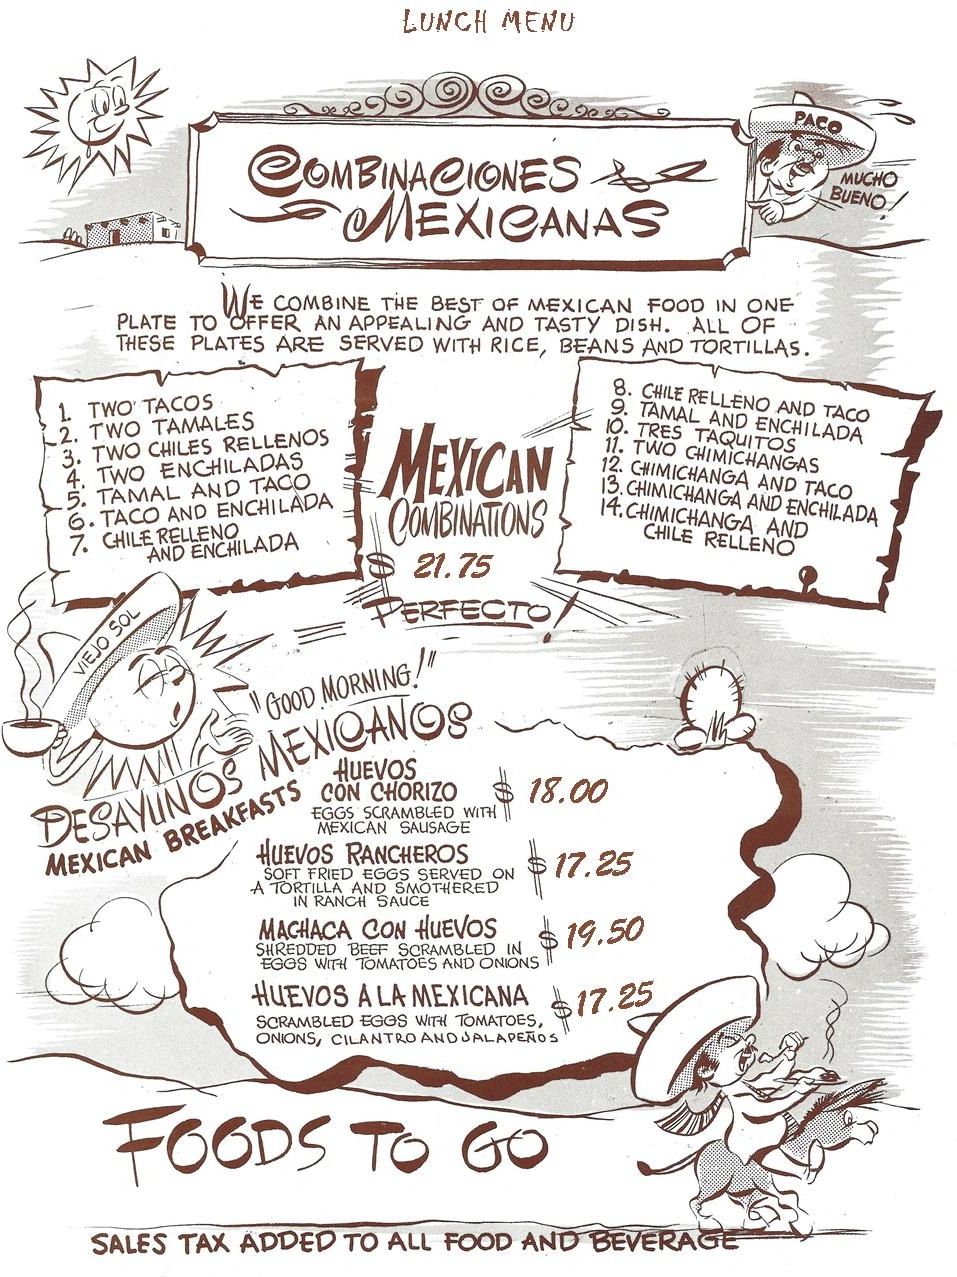 LUNCH MENU
COMBINACIONES
MEXICANAS
PACO
MUCHO
BUENO!
WE COMBINE THE BEST OF MEXICAN FOOD IN ONE
PLATE TO OFFER AN APPEALING AND TASTY DISH. ALL OF
THESE PLATES ARE SERVED WITH RICE, BEANS AND TORTILLAS.
1. TWO TACOS
2. TWO TAMALES
3. TWO CHILES RELLENOS
4. TWO ENCHILADAS
5. TAMAL AND TACO
6. TACO AND ENCHILADA
7. CHILE RELLENO
AND ENCHILADA
MEXICAN
COMBINATIONS
$ 21.75
PERFECTO!
8. CHILE RELLENO AND TACO
9. TAMAL AND ENCHILADA
10. TRES TAQUITOS
11. TWO CHIMICHANGAS
12. CHIMICHANGA AND TACO
13. CHIMICHANGA AND ENCHILADA
14. CHIMICHANGA AND
CHILE RELLENO
VIEJO SOL
"GOOD MORNING!"
DESAYUNOS MEXICANOS
MEXICAN BREAKFASTS
HUEVOS
CON CHORIZO $ 18.00
EGGS SCRAMBLED WITH
MEXICAN SAUSAGE
HUEVOS RANCHEROS $ 17.25
SOFT FRIED EGGS SERVED ON
A TORTILLA AND SMOTHERED
IN RANCH SAUCE
MACHACA CON HUEVOS $ 19.50
SHREDDED BEEF SCRAMBLED IN
EGGS WITH TOMATOES AND ONIONS
HUEVOS A LA MEXICANA $ 17.25
SCRAMBLED EGGS WITH TOMATOES,
ONIONS, CILANTRO AND JALAPEÑOS
FOODS TO GO
SALES TAX ADDED TO ALL FOOD AND BEVERAGE